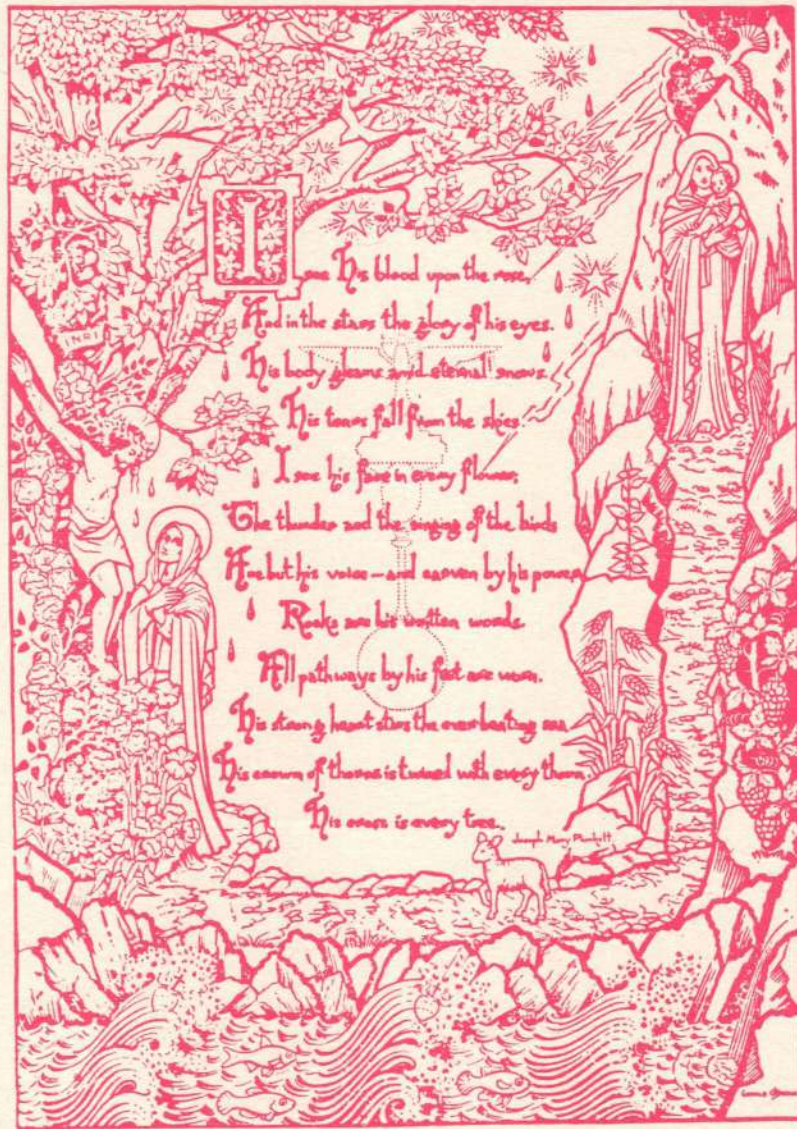 INRI
I see his blood upon the rose,
And in the stars the glory of his eyes.
His body gleams amid eternal snows
His tears fall from the skies.
I see his face in every flower;
The thunder and the singing of the birds
Are but his voice — and carven by his power,
Rocks are his written words.
All pathways by his feet are worn.
His strong heart stirs the ever-beating sea
His crown of thorns is twined with every thorn,
His cross is every tree.
Joseph Mary Plunkett